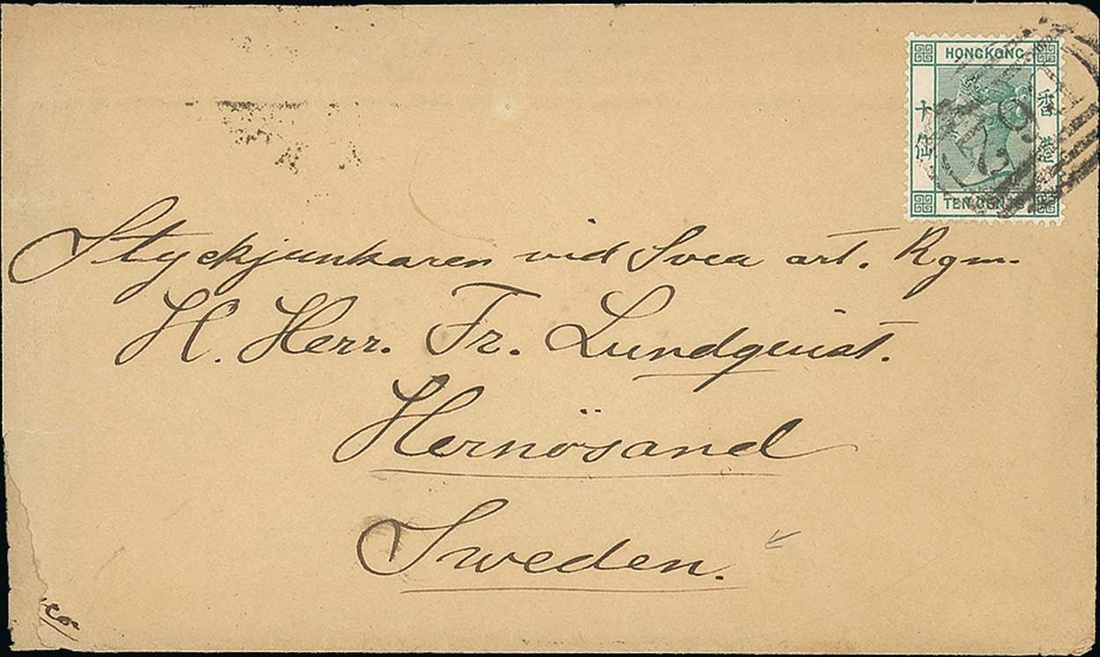 HONGKONG
香港
十仙
TEN CENTS
B62
Styckjunkaren vid Svea art. Rgm.
H. Herr. Fr. Lundquist.
Hernösand
Sweden.